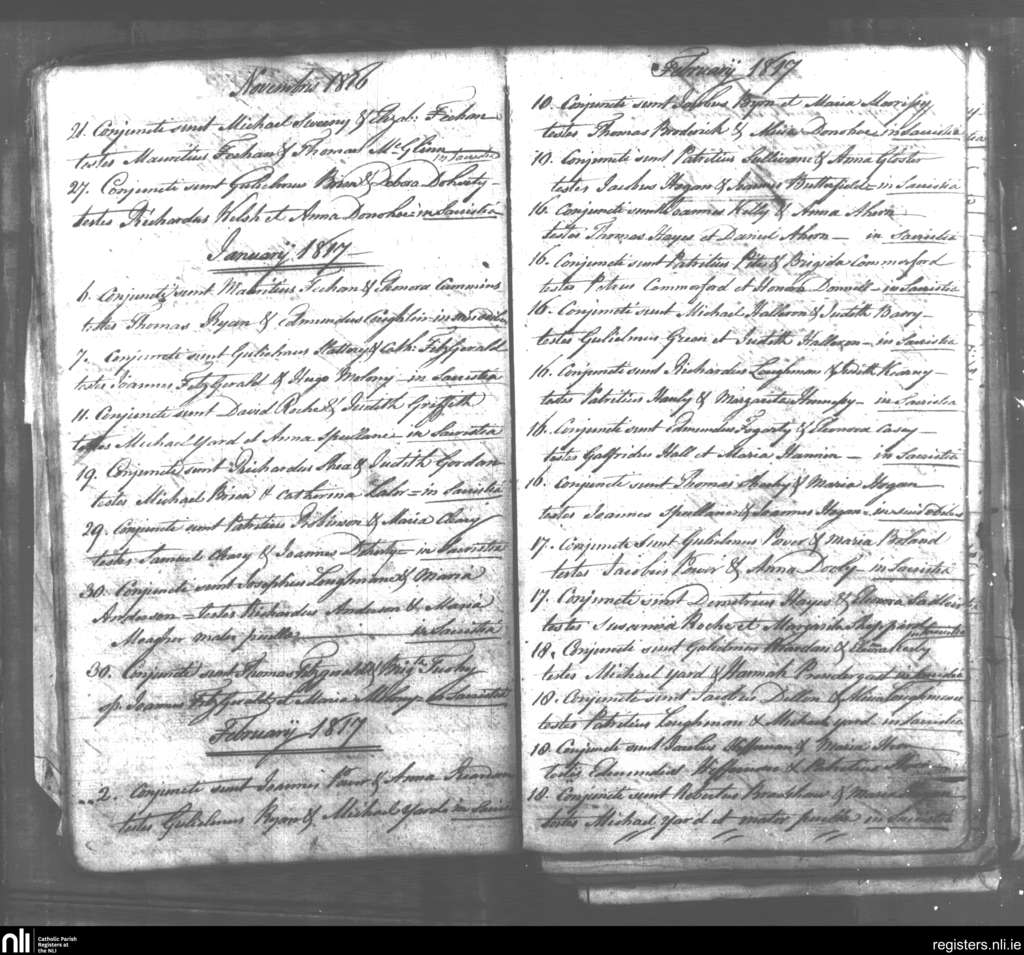 Novembris 1816
21. Conjuncti sunt Michael Sweeny & Elizab: Feehan
testes Mauritius Feehan & Thomas McGlinn
in Sacristia
27. Conjuncti sunt Gulielmus Brien & Debora Doherty
testes Richardus Welsh et Anna Donohoe in Sacristia
Januarij 1817
6. Conjuncti sunt Mauritius Feehan & Honora Cummins
testes Thomas Ryan & Edmundus Coughlin
7. Conjuncti sunt Gulielmus Slattery & Cath: FitzGerald
teste Joannes FitzGerald & Hugo Molony in Sacristia
11. Conjuncti sunt David Roche & Judith Griffith
testes Michael Yard et Anna Spellane in Sacristia
19. Conjuncti sunt Richardus Shea & Judith Gordan
testes Michael Brien & Catherina Lalor = in Sacristia
29. Conjuncti sunt Patritius Robinson & Maria Cleary
testes Samuel Cleary & Joannes Doherty = in Sacristia
30. Conjuncti sunt Josephus Loughman & Maria
Anderson = testes Richardus Anderson & Maria
Meagher mater puellae in Sacristia
30. Conjuncti sunt Thomas Fitzgerald & Brigt. Tuohy
sp. Joannes FitzGerald et Maria in Sacristia
Februarij 1817
2. Conjuncti sunt Joannes Power & Anna Reardan
testes Gulielmus Ryan & Michael Yard in Sacris
Februarij 1817
10. Conjuncti sunt Jacobus Byon et Maria Morrissy
testes Thomas Broderick & Maria Donohoe in Sacristia
10. Conjuncti sunt Patritius Sullivane & Anna Gloster
testes Jacobus Hogan & Joannes Butterfield = in Sacristia
16. Conjuncti sunt Joannes Kelly & Anna Ahern
testes Thomas Hayes et Daniel Ahern — in Sacristia
16. Conjuncti sunt Patritius & Brigida Commerford
testes Petrus Commerford et Honora Donnell — in Sacristia
16. Conjuncti sunt Michael Halloran & Judith Barry —
testes Gulielmus Green et Judith Halloran — in Sacristia
16. Conjuncti sunt Richardus Loughman & Judith
testes Patritius Hanly & Margarita — in Sacristia
16. Conjuncti sunt Edmundus Fogarty & Honora Casey —
testes Galfridus Hall et Maria Hannin — in Sacristia
16. Conjuncti sunt Thomas & Maria Hogan
testes Joannes Spellane & Joannes Hogan
17. Conjuncti sunt Gulielmus Power & Maria Boland
testes Jacobus Power & Anna Dooly — in Sacristia
17. Conjuncti sunt Demetrius Hayes & Elenora Sadleir
testes Susanna Roche et Margarita Sheppard
in Sacristia
18. Conjuncti sunt Gulielmus Reardan &
testes Michael Yard & Hannah Prendergast in Sacristia
18. Conjuncti sunt Jacobus Dillon & Maria Loughman
testes Patritius Loughman & Michael Yard in Sacristia
18. Conjuncti sunt Jacobus Heffernan & Maria
testes Edmundus Heffernan & Patritius
18. Conjuncti sunt Robertus Bradshaw & Maria
testes Michael Yard et mater puellae in Sacristia
nli
Catholic Parish
Registers at
the NLI
registers.nli.ie